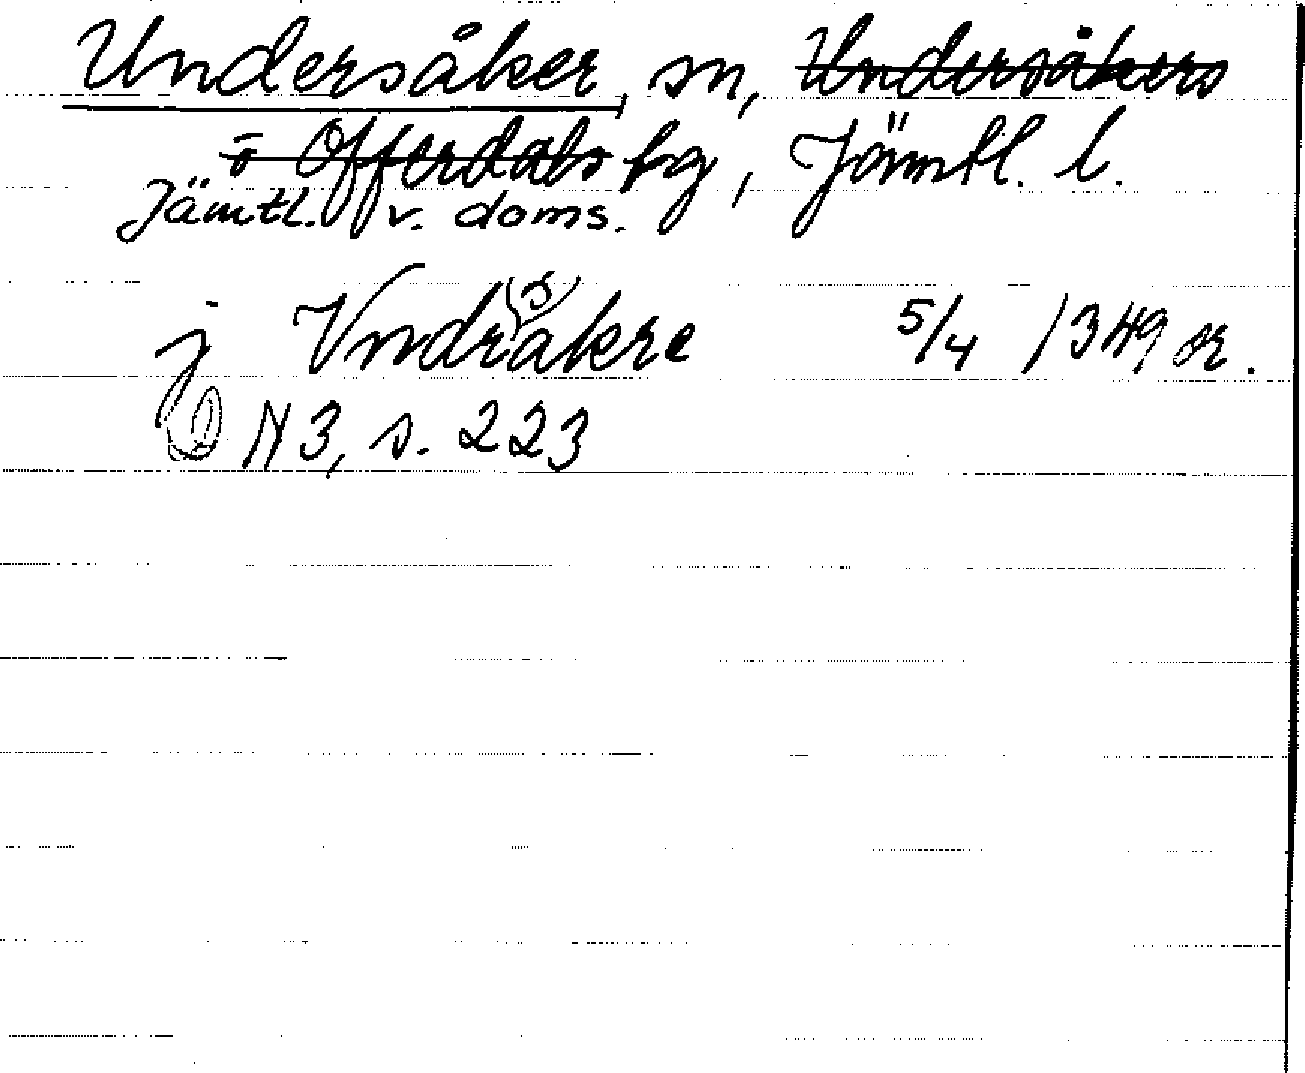 Undersåker, sn, Undersåkers
o Offerdals hg, Jämtl. l.
Jämtl. v. doms.
j Vndr(s)åkre 5/4 1349 or.
N 3, s. 223